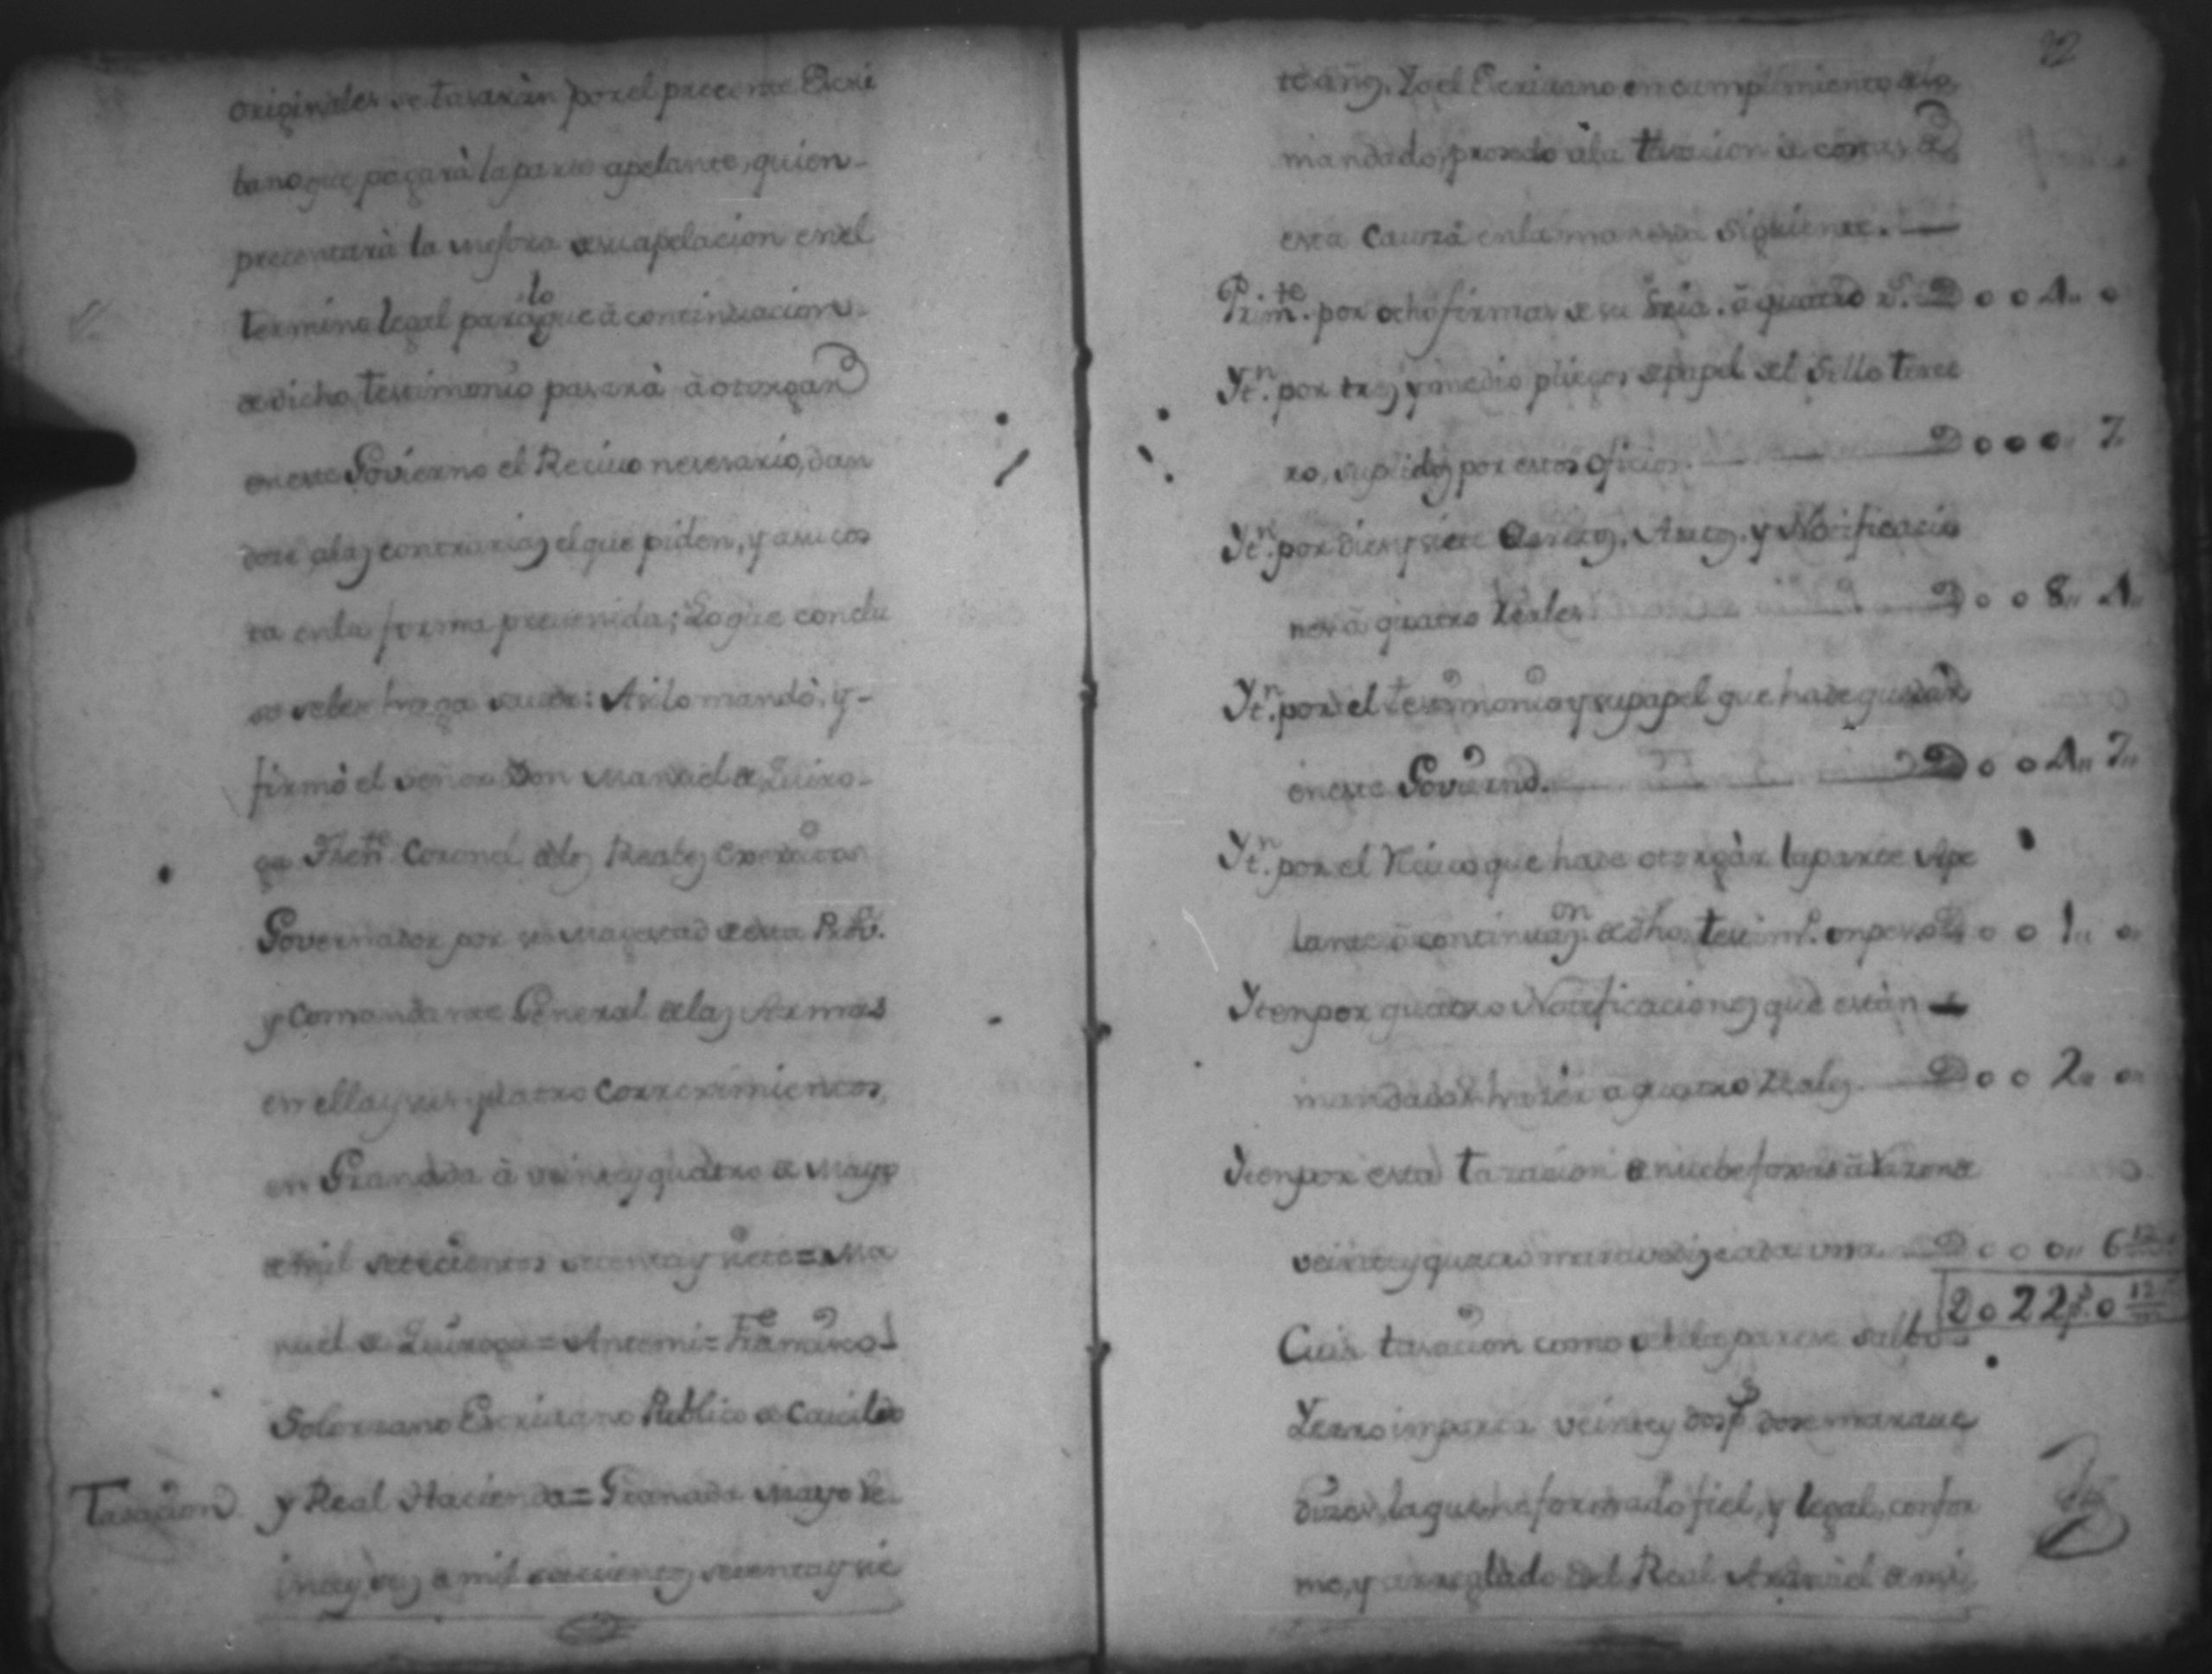 originales se tasaràn por el precente Escri
bano que pagarà la parte apelante, quien-
precentarà la mejora de su apelacion en el
termino legal para lo que à continuacion-
de dicho testimonio pasarà à otorgar
en este Govierno el Recivo necesario, dan
dose a las contrarias el que piden, y a su cos
ta en la forma prevenida; Lo que conclu
so se les haga saver: Asi lo mandò, y-
firmò el señor Don Manuel de Quiro-
ga Then.te Coronel de los Reales Exercitos
Governador por su Magestad de esta Prov.
y Comandante General de las Armas
en ella y sus quatro Correximientos,
en Granada à veinte y quatro de Mayo
de mil setecientos setenta y siete = Ma
nuel de Quiroga = Ante mi = Francisco
Solorzano Escrivano Publico de Cavildo
Tasacion y Real Hacienda = Granada Mayo ve
inte y seis de mil setecientos setenta y sie
92
te años. Yo el Escrivano en cumplimiento de lo
mandado, procedo à la tasacion de costas de
esta Causa en la manera siguiente.
Prim.te por ocho firmas de su Sria. à quatro r.s 2 o o 4 o
Yt.n por tres y medio pliegos de papel del Sello terce
ro, suplidos por estos oficios 2 o o o 7
Yt.n por dies y siete Decretos, Autos, y Notificacio
nes à quatro Reales 2 o o 8 4
Yt.n por el testimonio y su papel que ha de quedar
en este Govierno. 2 o o 4 7
Yt.n por el Recivo que hade otorgàr la parte Ape
lante à continuaz.on de dho. testim.o un peso 2 o o 1 o
Yten por quatro Notificaciones que estàn
mandadas hazèr a quatro Reales 2 o o 2 o
Yten por esta tasacion de nuebe foxas à razon de
veinte y quatro maravedis cada una 2 o o o 6 12
2 o 22 p.s o 12
Cuia tasacion como de ella parese salbo
Yerro importa veinte y dos p.s dose marave
dizes, la que he formado fiel, y legal, confor
me, y arreglado del Real Aranzel de mi